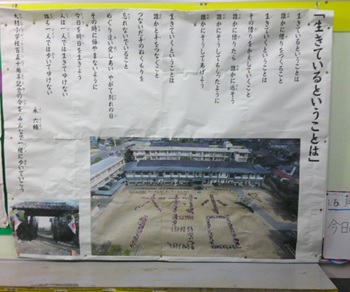 「生きているということは」
生きているということは
誰かに借りをつくること
生きてゆくということは
その借りをかえしてゆくこと
誰かに借りたら 誰かに返そう
誰かにそうしてもらったように
誰かにそうしてあげよう
生きていくということは
誰かと手をつなぐこと
つないだ手のぬくもりを
忘れないでいること
めぐり逢い 愛しあい やがて別れの日
その時に悔やまないように
今日を明日を生きよう
人は一人では生きてゆけない
誰も一人では歩いてゆけない
永 六輔
大村小学校百五十周年記念の今を みんなで一緒に歩いていこう
大村小
150
今日